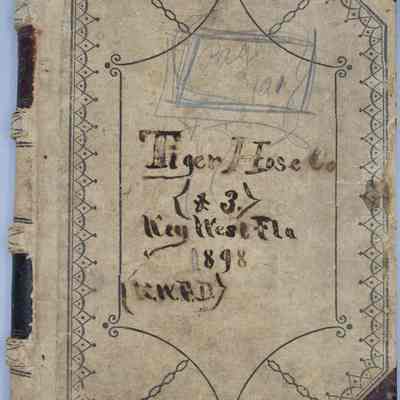 Tiger Hose Co
(* 3.)
Key West Fla
1898
(K.W.F.D)